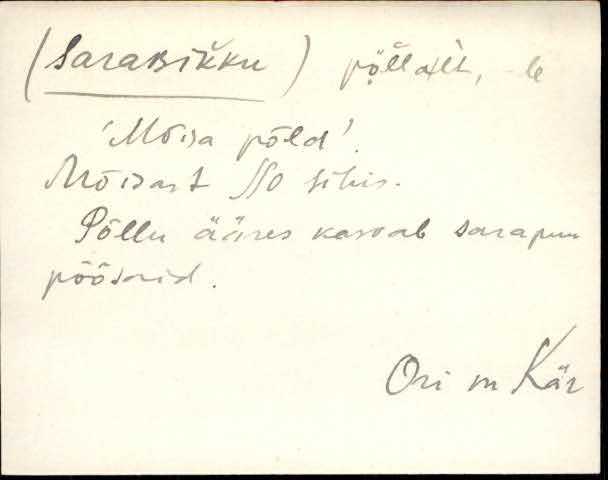 (Sarasikku) põllalt, -le
'Mõisa põld'.
Mõisast NO sihis.
Põllu ääres kasvab sarapuu
põõsaid.
Ori m Kär